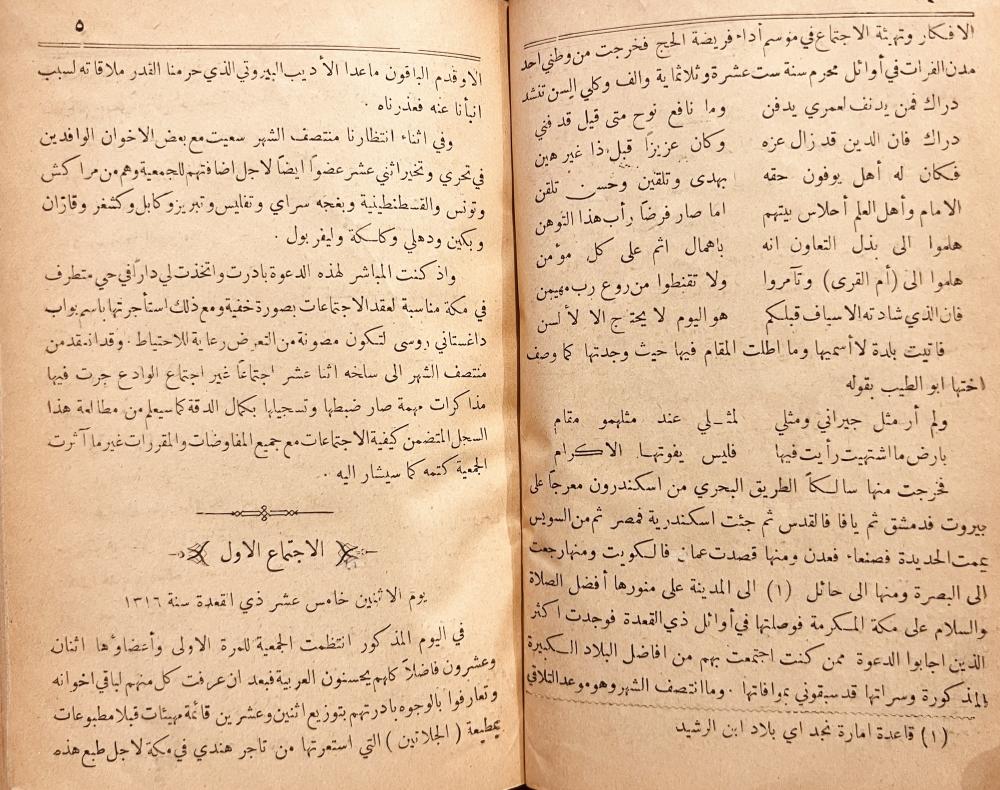 الافكار وتهيئة الاجتماع في موسم أداء فريضة الحج فخرجت من وطني احد
مدن الفرات في أوائل محرم سنة ست عشرة وثلاثماية والف وكلي السن تنشد
دراك فمن يدنف لعمري يدفن وما نافع نوح متى قيل قد فني
دراك فان الدين قد زال عزه وكان عزيزاً قبل ذا غير هين
فكان له أهل يوفون حقه بهدى وتلقين وحسن تلقن
الام وأهل العلم أحلاس بيتهم اما صار فرضاً رأب هذا التوهن
هلموا الى بذل التعاون انه باهمال اثم على كل مؤمن
هلموا الى (أم القرى) وتآمروا ولا تقنطوا من روع رب مهيمن
فان الذي شادته الاسياف قبلكم هو اليوم لا يحتاج الا لألسن
فاتيت بلدة لا أسميها وما اطلت المقام فيها حيث وجدتها كما وصف
اختها ابو الطيب بقوله
ولم أر مثل جيراني ومثلي لمثـلي عند مثلهمو مقام
بارض ما اشتهيت رأيت فيها فليس يفوتهـا الا الكرام
فخرجت منها سالكاً الطريق البحري من اسكندرون معرجاً على
بيروت فدمشق ثم يافا فالقدس ثم جئت اسكندرية فمصر ثم من السويس
يممت الحديدة فصنعاء فعدن ومنها قصدت عمان فالكويت ومنها رجعت
الى البصرة ومنها الى حائل (١) الى المدينة على منورها أفضل الصلاة
والسلام على مكة المكرمة فوصلتها في أوائل ذي القعدة فوجدت اكثر
الذين اجابوا الدعوة ممن كنت اجتمعت بهم من افاضل البلاد الكبيرة
المذكورة وسراتها قد سبقوني بموافاتها . وما انتصف الشهر وهو موعد التلاقي
(١) قاعدة امارة نجد اي بلاد ابن الرشيد
٥
الا وقدم الباقون ماعدا الأديب البيروتي الذي حرمنا القدر ملاقاته لسبب
انبأنا عنه فعذرناه .
وفي اثناء انتظارنا منتصف الشهر سعيت مع بعض الاخوان الوافدين
في تحري وتخير اثني عشر عضواً ايضاً لاجل اضافتهم للجمعية وهم من مراكش
وتونس والقسطنطينية وبغجه سراي وتفليس وتبريز وكابل وكشغر وقازان
وبكين ودهلي وكلكتة وليفربول .
واذ كنت المباشر لهذه الدعوة بادرت واتخذت لي داراً في حي متطرف
في مكة مناسبة لعقد الاجتماعات بصورة خفية ومع ذلك استأجرتها باسم بواب
داغستاني روسي لتكون مصونة من التعرض رعاية للاحتياط . وقد انعقد من
منتصف الشهر الى سلخه اثنا عشر اجتماعاً غير اجتماع الوادع جرت فيها
مذاكرات مهمة صار ضبطها وتسجيلها بكمال الدقة كما سيعلم من مطالعة هذا
السجل المتضمن كيفية الاجتماعات مع جميع المفاوضات والمقررات غير ما آثرت
الجمعية كتمه كما سيشار اليه .
الاجتماع الاول
يوم الاثنين خامس عشر ذي القعدة سنة ١٣١٦
في اليوم المذكور انتظمت الجمعية للمرة الاولى وأعضاؤها اثنان
وعشرون فاضلاً كلهم يحسنون العربية فبعد ان عرفت كل منهم لباقي اخوانه
وتعارفوا بالوجوه بادرتهم بتوزيع اثنين وعشرين قائمة مهيئات قبلا مطبوعات
بمطبعة (الجلاتين) التي استعرتها من تاجر هندي في مكة لاجل طبع هذه